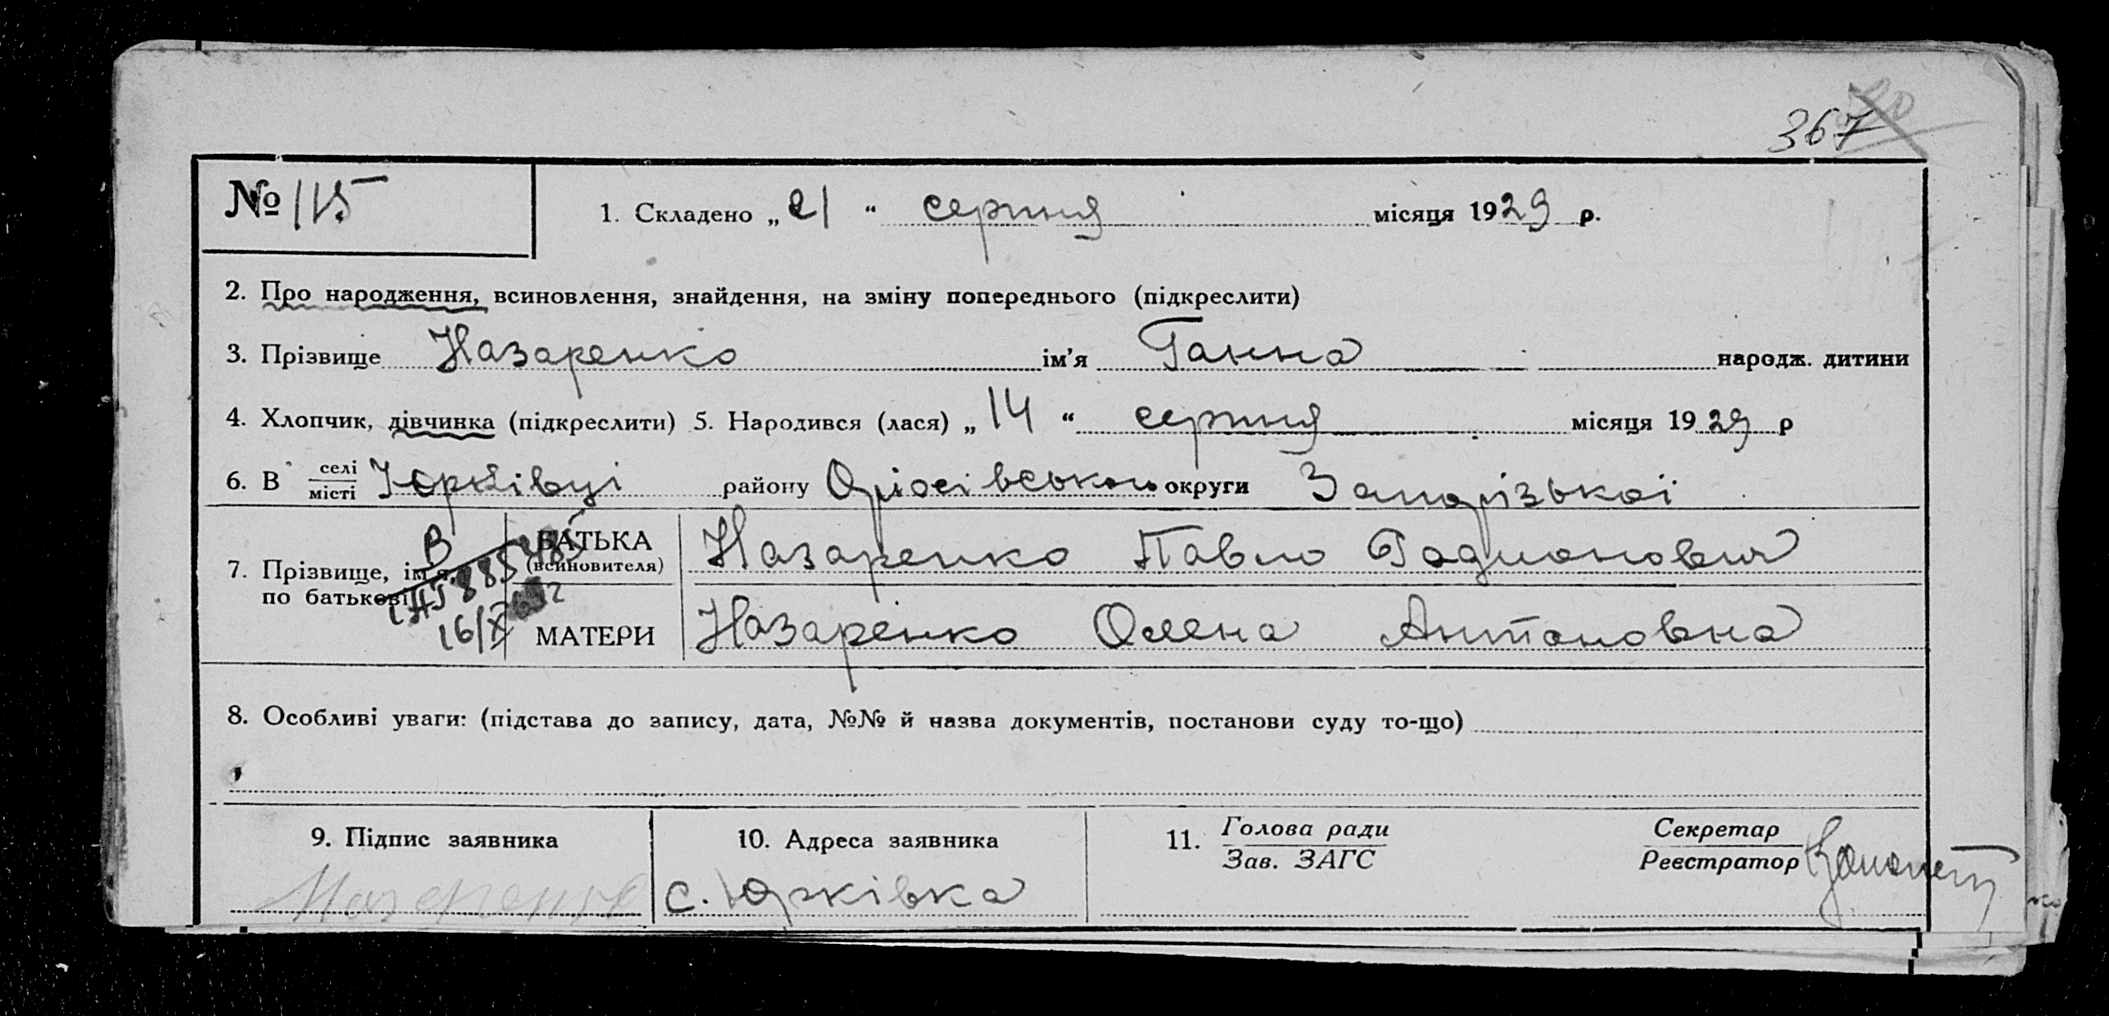 367
№ 115
1. Складено „21“ серпня місяця 1929 р.
2. Про народження, всиновлення, знайдення, на зміну попереднього (підкреслити)
3. Прізвище Назаренко ім’я Ганна народж. дитини
4. Хлопчик, дівчинка (підкреслити) 5. Народився (лася) „14“ серпня місяця 1929 р
6. В селі Юрківці району Оріхівського округи Запорізької
місті
7. Прізвище, ім’я по батькові
БАТЬКА (всиновителя) Назаренко Павло Родионович
МАТЕРИ Назаренко Олена Антоновна
8. Особливі уваги: (підстава до запису, дата, №№ й назва документів, постанови суду то-що)
9. Підпис заявника
Назаренко
10. Адреса заявника
с. Юрківка
11. Голова ради
Зав. ЗАГС
Секретар
Реєстратор